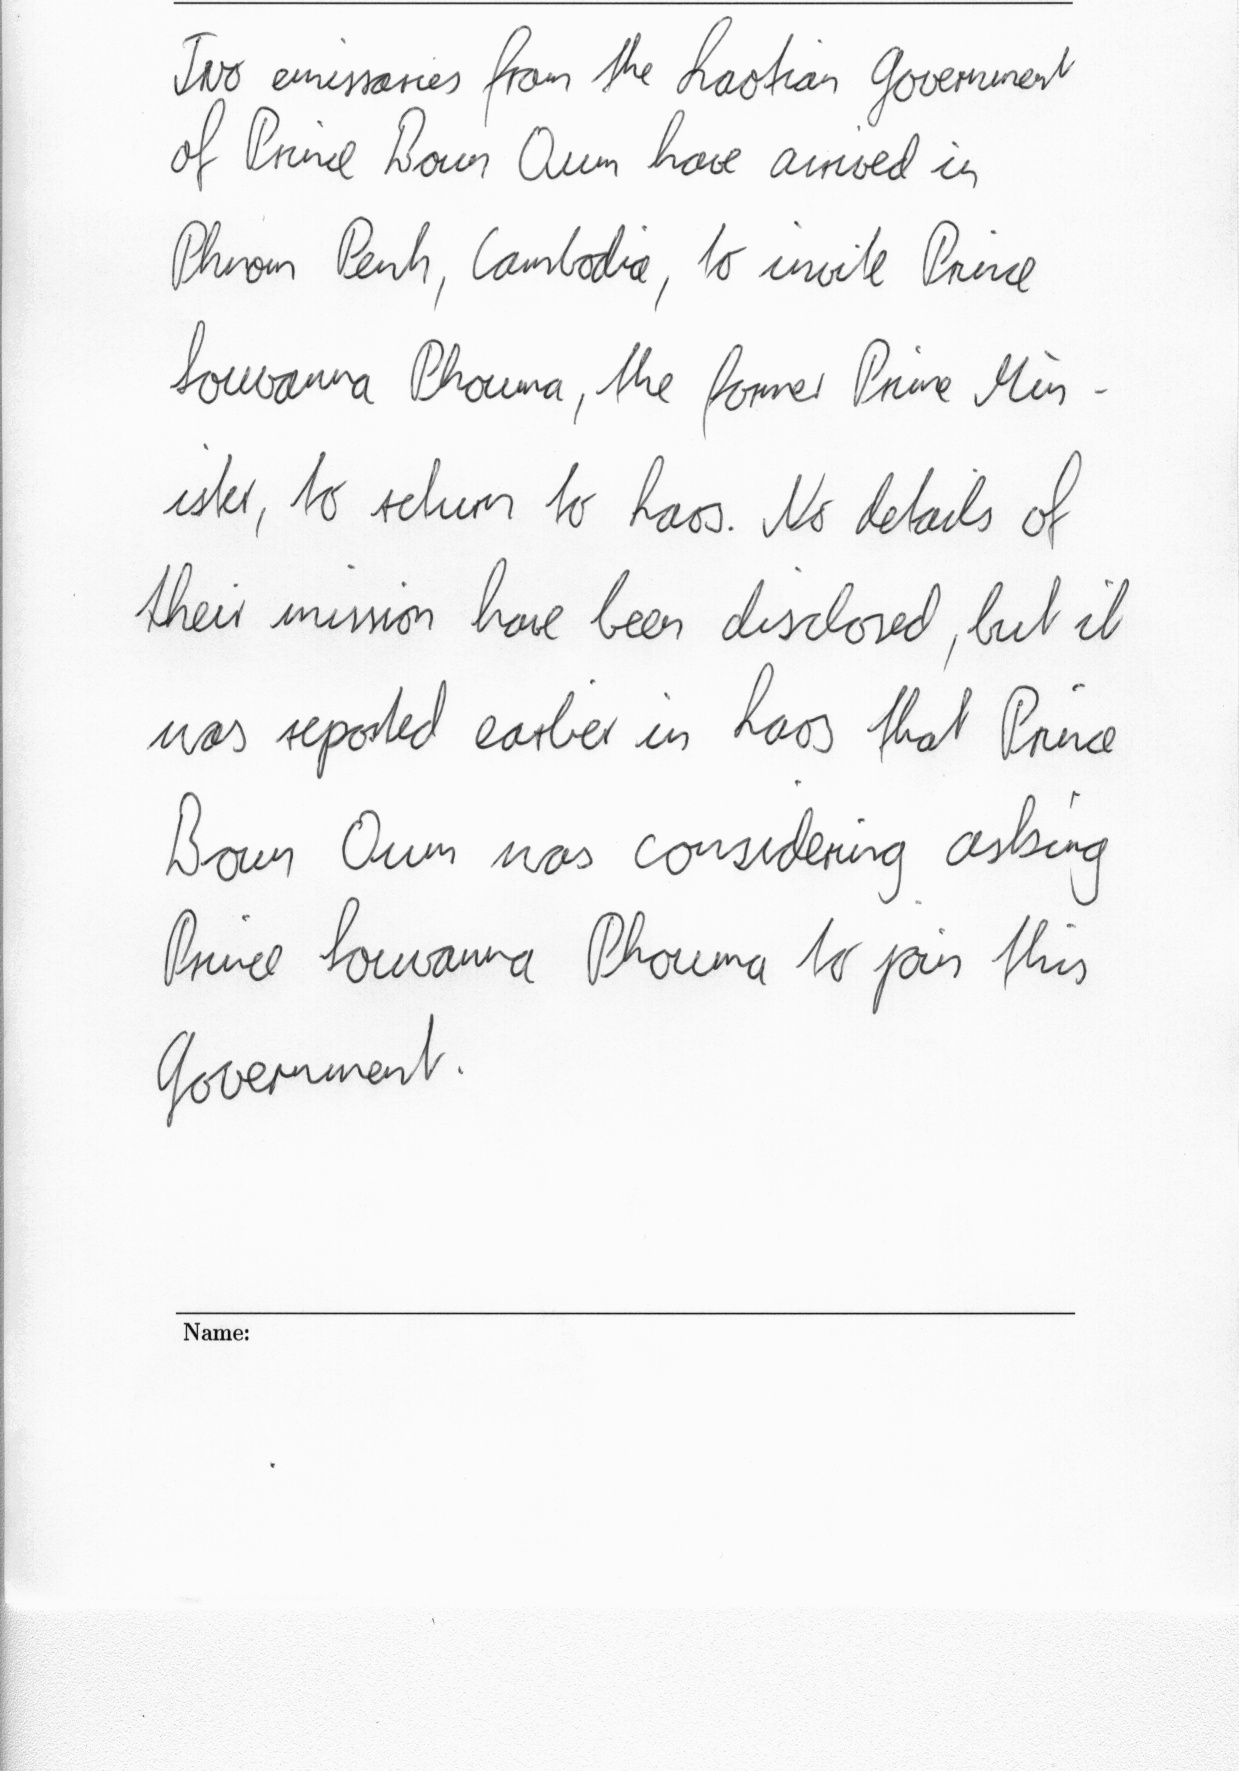 Two emissaries from the Laotian Government
of Prince Boun Oum have arrived in
Phnom Penh, Cambodia, to invite Prince
Souvanna Phouma, the former Prime Min-
ister, to return to Laos. No details of
their mission have been disclosed, but it
was reported earlier in Laos that Prince
Boun Oum was considering asking
Prince Souvanna Phouma to join this
Government.
Name: